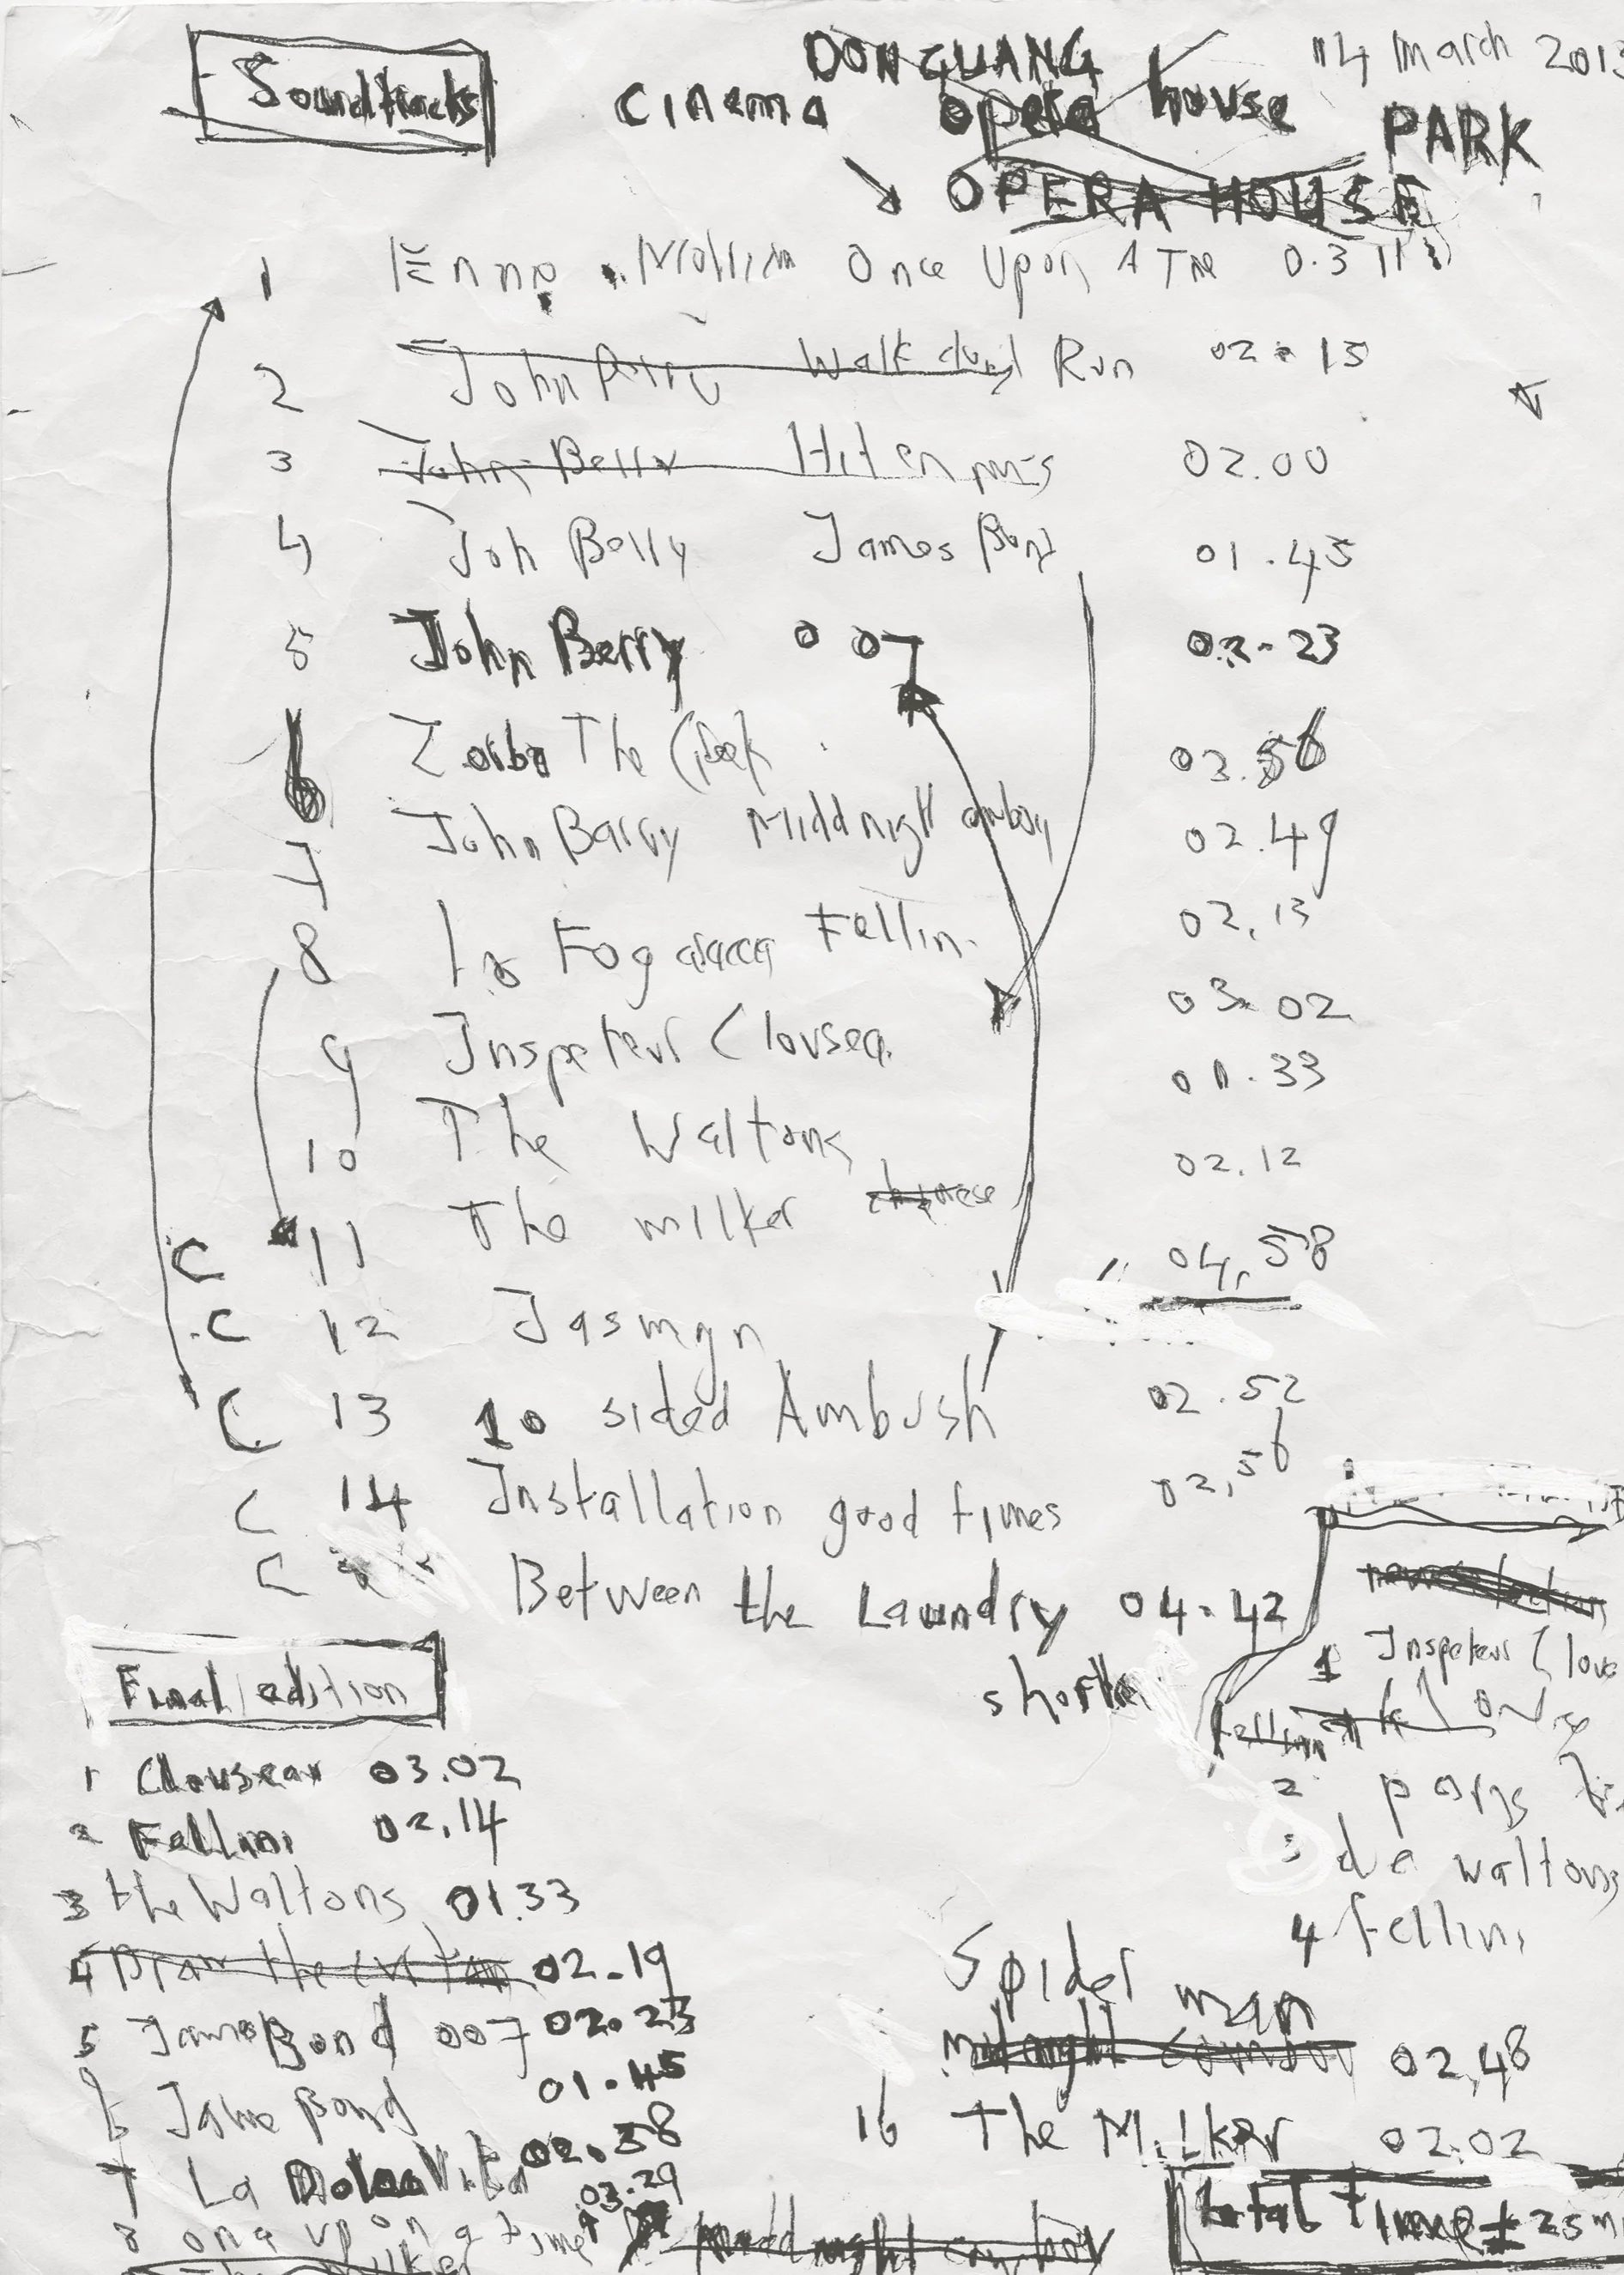 Soundtracks
DONGUANG
14 March 2013
cinema opera house
PARK
OPERA HOUSE
1 Once Upon A
2 John Walk Run 02.15
3 John Berry 02.00
4 Joh Berry James Bond 01.45
5 John Berry 007 02.23
6 Zorba The Greek 03.56
7 John Barry Middnight 02.49
8 Fellin. 02.13
9 Inspeteur Clousea. 03.02
10 The Waltons 01.33
11 The milker chinese 02.12
C
12 Jasmyn 04,58
C
C 13 10 sided Ambush 02.52
C 14 Installation good times 02,56
C Between the Laundry 04.42
shorter
1 Inspeteur
2
3 de waltons
4 fellini
Final edition
1 Clouseau 03.02
2 Fellini 02.14
3 the Waltons 01.33
4 Draw the curtan 02.19
5 James Bond 007 02.23
6 Jame Bond 01.45
7 La Dolce Vita 02.58
8 upon a time 03.29
Spider man
midnight 02,48
16 The Milker 02.02
total time ± 25